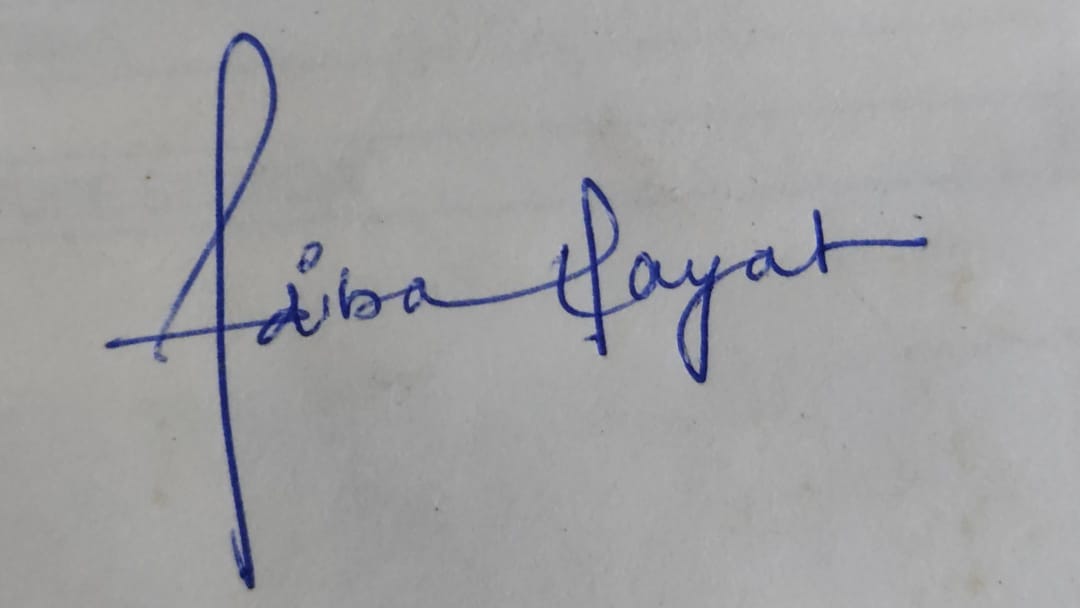 Adiba Hayat